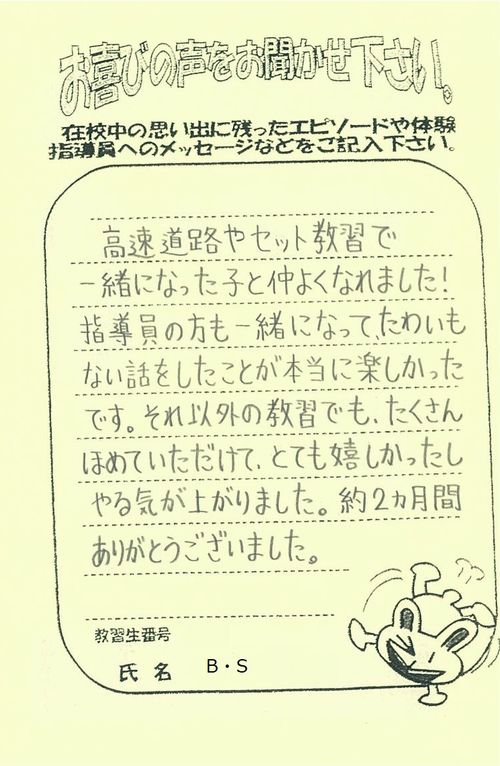 お喜びの声をお聞かせ下さい。
在校中の思い出に残ったエピソードや体験
指導員へのメッセージなどをご記入下さい。
高速道路やセット教習で
一緒になった子と仲よくなれました!
指導員の方も一緒になって、たわいも
ない話をしたことが本当に楽しかった
です。それ以外の教習でも、たくさん
ほめていただけて、とても嬉しかったし
やる気が上がりました。約2ヵ月間
ありがとうございました。
教習生番号
氏名 B・S